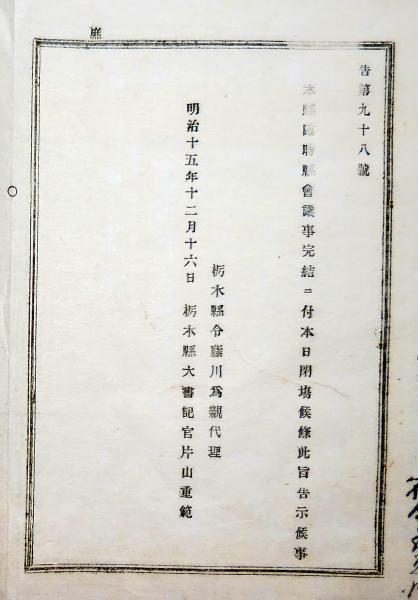 庶
告第九十八號
本縣臨時縣會議事完結ニ付本日閉塲候條此旨吿示候事
明治十五年十二月十六日
栃木縣令藤川爲親代理
栃木縣大書記官片山重範